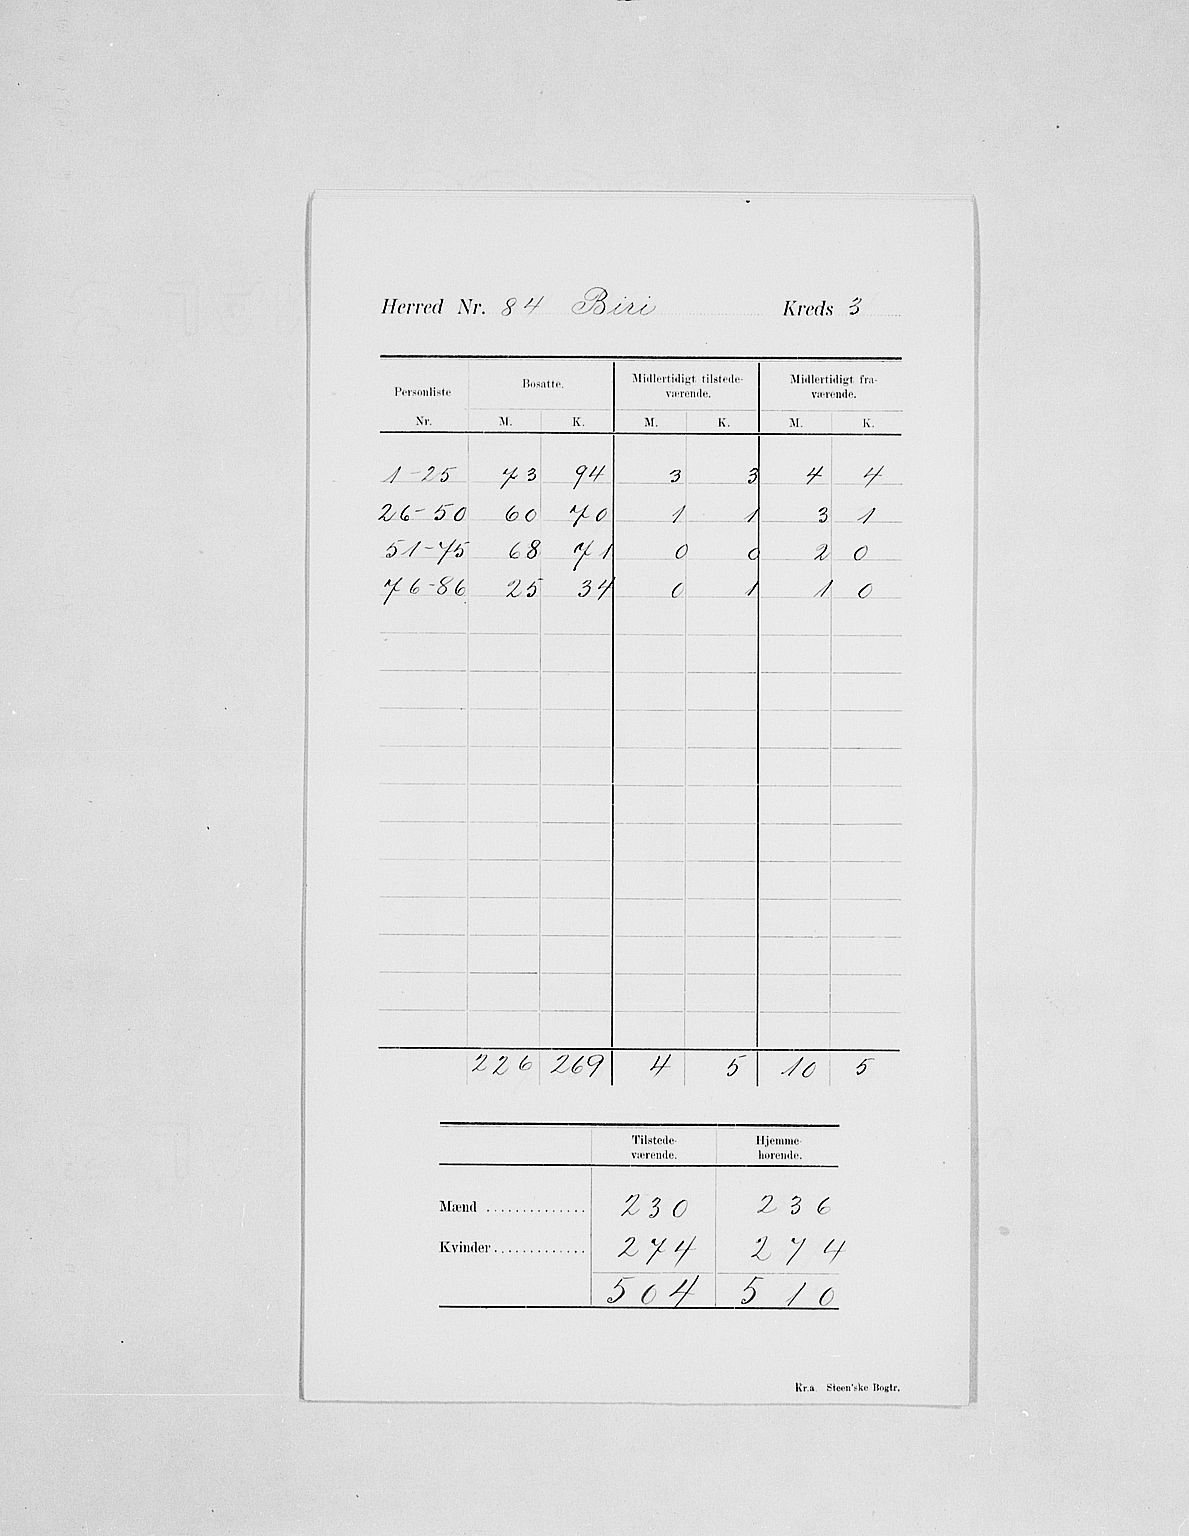 Herred Nr. 84 Biri Kreds 3
Personliste Nr. Bosatte. Midlertidigt tilstede- Midlertidigt fra-
værende. værende.
M. K. M. K. M. K.
1-25 73 94 3 3 4 4
26-50 60 70 1 1 3 1
51-75 68 71 0 0 2 0
76-86 25 34 0 1 1 0
226 269 4 5 10 5
Tilstede- Hjemme-
værende. hørende.
Mænd .............. 230 236
Kvinder ............. 274 274
504 510
Kr.a. Steen'ske Bogtr.